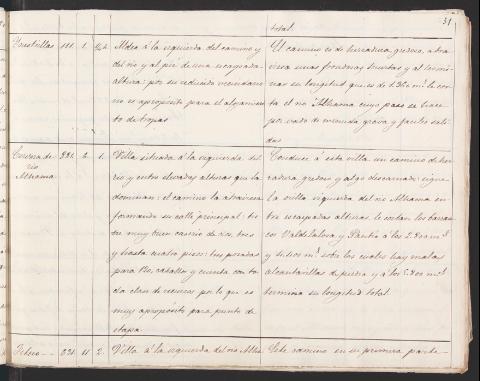 31
total.
111. 1.
Aldea á la izquierda del camino y
del rio y al pié de una escarpada
altura: por su reducido vecindario
no es apropósito para el alojamien-
to de tropas
El camino es de herradura gredoso, atra-
viesa unas frondosas huertas y al termi-
nar su longitud que es de
ta el rio Alhama cuyo paso se hace
por vado de menuda grava y faciles sali-
das
Cervera de
rio
Alhama
891. 2. 1.
Villa situada á la izquierda del
rio y entre elevadas alturas que la
dominan: el camino la atraviesa
formando su calle principal: tie-
ne muy buen caserio de dos, tres
y hasta cuatro pisos: tres posadas
para caballos y cuenta con to-
da clase de recursos por lo que es
muy apropósito para punto de
etapa.
Conduce á esta villa un camino de her-
radura gredoso y algo descarnado: sigue
la orilla izquierda del rio Alhama en-
tre escarpadas alturas le cortan los barran-
cos Valdelalora y á los
sobre los cuales hay malas
alcantarillas de piedra y á los
termina su longitud total.
821. 11 2.
Villa á la izquierda del rio Alha
Este camino en su primera parte